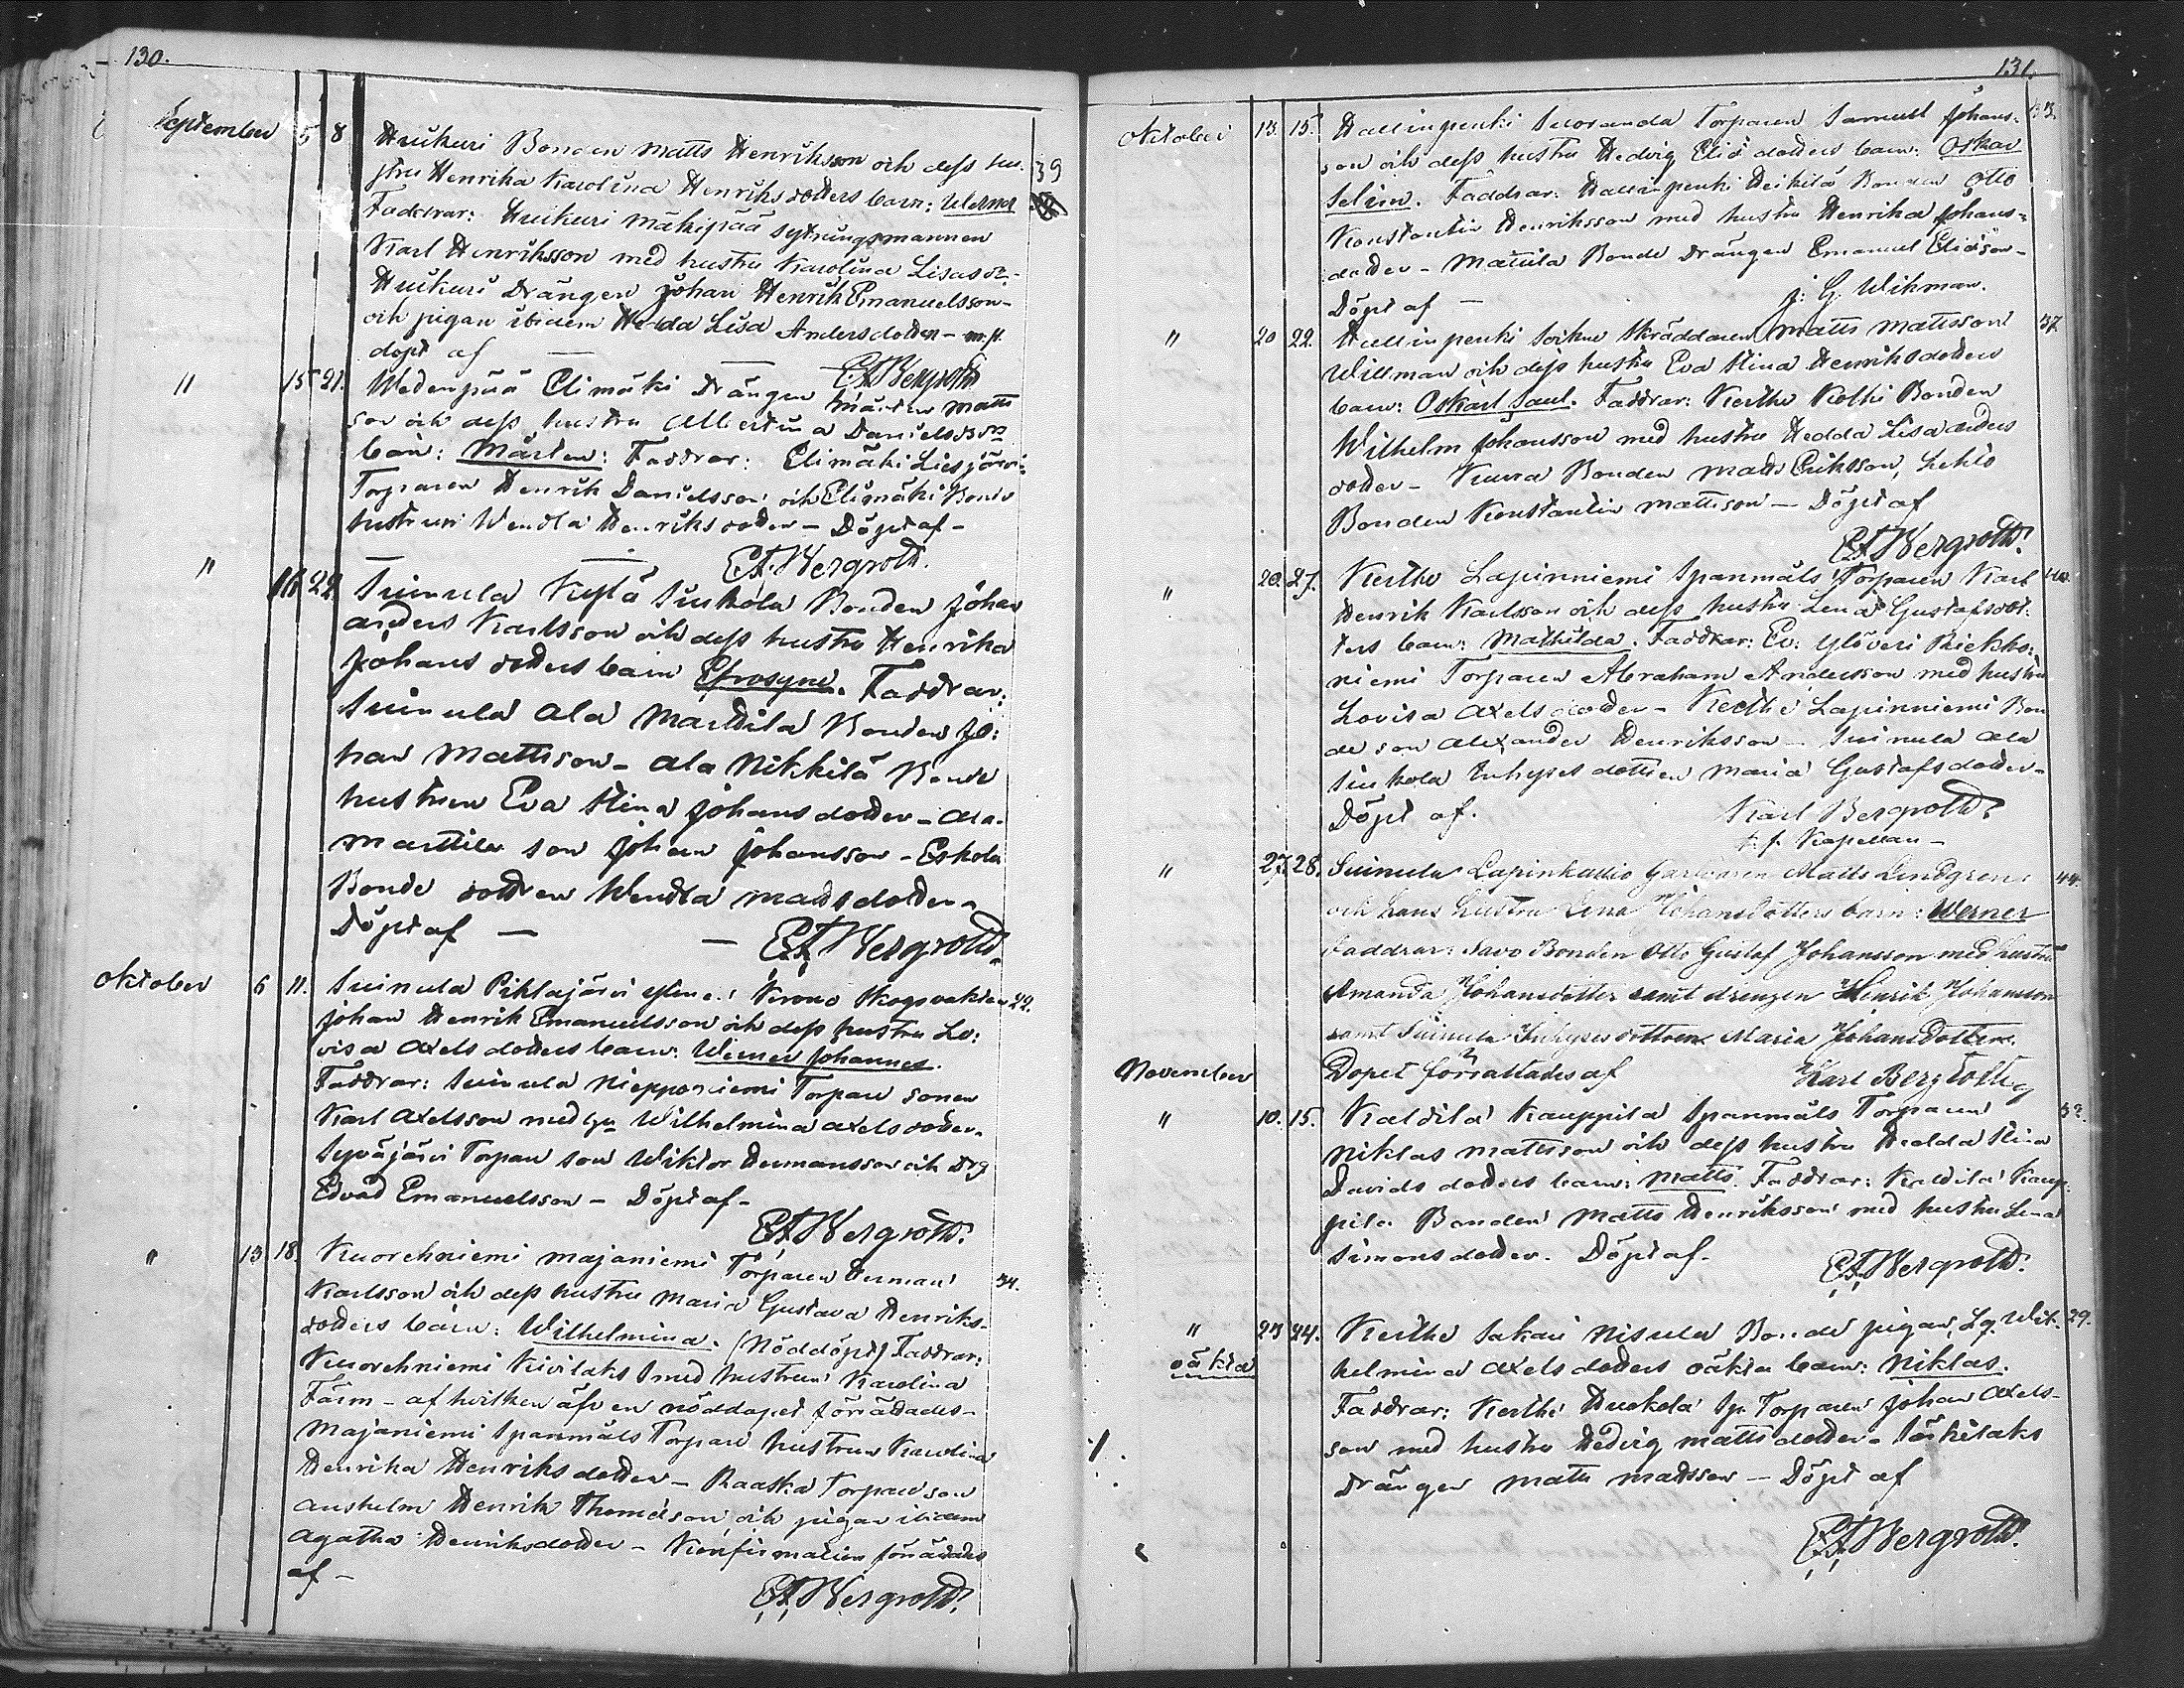 130.
September 5 8 Huikuri Bonden Matts Henriksson och dess hu- 39
stru Henrika Karolina Henriksdotters barn: Werner
Faddrar: Huikuri Mäkipää sytningsmannen
Karl Henriksson med hustru Karolina Lisasdr-
Huikuri Drängen Johan Henrik Emanuelsson-
och pigan ibidem Hedda Lisa Andersdotter-
döpt af — — E A Bergroth
" 15 21. Wedenpää Elimäki Drängen Mårten Matts
son och dess hustru Albertina Danielsdrs
barn: Mårten: Faddrar: Elimäki Liesjärvi
Torparen Henrik Danielsson och Elimäki Bonde
hustrun Wendla Henriksdotter - Döpt af -
— — E.A. Bergroth.
" 16 22. Suinula Kylä Siukola Bonden Johan
Anders Karlsson och dess hustru Henrika
Johansdotters barn Efrosyne. Faddrar:
Suinula Ala Marttila Bonden Jo:
han Mattsson - Ala Nikkilä Bonde
hustrun Eva Stina Johansdotter - Ala-
Marttila son Johan Johansson - Eskola
Bonde dottren Wendla Madsdotter-
Döpt af — — E.A. Bergroth.
Oktober 6 11. Suinula Pihlajärvi Krono Skogvaktaren 22.
Johan Henrik Emanuelsson och dess hustru Lo:
visa Axelsdotters barn: Werner Johannes.
Faddrar: Suinula Niepponiemi Torpare sonen
Karl Axelsson med Wilhelmina Axelsdotter.
Syväjärvi Torpare son Wiktor Hermansson och Drg
Edvard Emanuelsson - Döpt af -
E A Bergroth.
" 13 18. Kuorehniemi Majaniemi Torparen Herman 34.
Karlsson och dess hustru Maria Gustava Henriks-
dotters barn: Wilhelmina. (Nöddöpt) Faddrar:
Kuorehniemi Kivilaks med hustrun Karolina
Färm - af hvilken äfven nöddopet förrättades -
Majaniemi Spanmåls Torpare hustrun Karolina
Henrika Henriksdotter - Raaska Torpare son
Anshelm Henrik Thomasson och pigan ibidem
Agatha Henriksdotter - Konfirmation förrättades
af -
E.A. Bergroth.
131.
Oktober 13. 15. Hallinpenki Suoranda Torparen Samuel Johans- 33.
son och dess hustru Hedvig Eliædotters barn: Oskar
Selim. Faddrar: Hallinpenki Heikilä Bonden Otto
Konstantin Henriksson med hustru Henrika Johans-
dotter - Mattila Bonde Drängen Emanuel Eliæson -
Döpt af — J: G. Wikman.
" 20 22. Hallinpenki Socknskräddaren Matts Mattsson 37.
Willman och dess hustru Eva Stina Henriksdotters
barn: Oskar Saul. Faddrar: Kerthe Kolhi Bonden
Wilhelm Johansson med hustru Hedda Lisa Anders
dotter - Kuura Bonden Mads Eriksson, Lehto
Bonden Konstantin Mattsson - Döpt af
E A Bergroth.
" 20. 27. Kerthe Lapinniemi Spanmåls Torparen Karl 40.
Henrik Karlsson och dess hustru Lena Gustafsdot-
ters barn: Mathilda. Faddrar: Ylöveri Riekko:
niemi Torparen Abraham Andersson med hustru
Lovisa Axelsdotter - Kerthe Lapinniemi Bon
de son Alexander Henriksson - Suinula Ala
Siukola Inhyses dottren Maria Gustafsdotter-
Döpt af. Karl Bergroth
t. f. Kapellan -
" 27. 28. Suinula Lapinkallio Garfvaren Matts Lindgren 44.
och hans hustru Lena Johansdotters barn: Werner
Faddrar: Savo Bonden Otto Gustaf Johansson med hustru
Amanda Johansdotter samt drengen Henrik Johansson
samt Suinula Inhyses dottren Maria Johansdotter.
Dopet förrättades af Karl Bergroth
November
" 10. 15. Kaltila Kauppila Spanmåls Torparen
Niklas Mattsson och dess hustru Hedda Stina
Davidsdotters barn: Matts. Faddrar: Kaltila Kaup-
pila Bonden Matts Henriksson med hustru Lena
Simonsdotter. Döpt af.
E A Bergroth.
" 23 24. Kerthe Sakari Nisula Bonde pigan, Lg. Wil- 29.
oäkta helmina Axelsdotters oäkta barn: Niklas.
Faddrar: Kerthe Huskola Sp. Torparen Johan Axels-
son med hustru Hedvig Mattsdotter - Särkilaks
Drängen Matts Madsson - Döpt af
E.A. Bergroth.